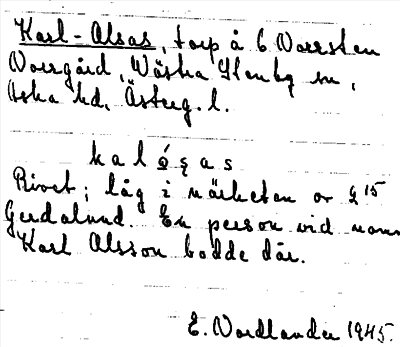 Karl-Alsas, torp å 6 Norrsten
Norrgård, Västra Stenby sn,
Aska hd, Österg. l.
kalǫ́sas
Rivet; låg i närheten av § 15
Gerdalund. En person vid namn
Karl Alsson bodde där.
E. Nordlander 1945.